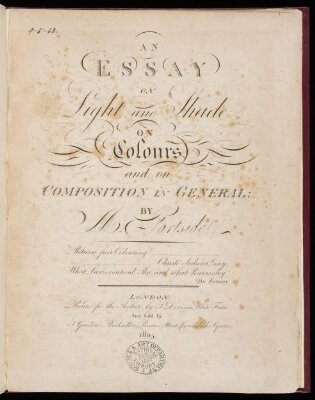 9-5-63.
AN
ESSAY
ON
Light and Shade
ON
Colours
and on
COMPOSITION IN GENERAL:
BY
M. Gartside
Return fair Colouring!
What Laws controul Thee, and what Powers obey.
LONDON
Printed for the Author, by T. Davison, White Friars
And Sold by
T. Gardiner, Bookseller, Princes Street, Cavendish Square
1805.